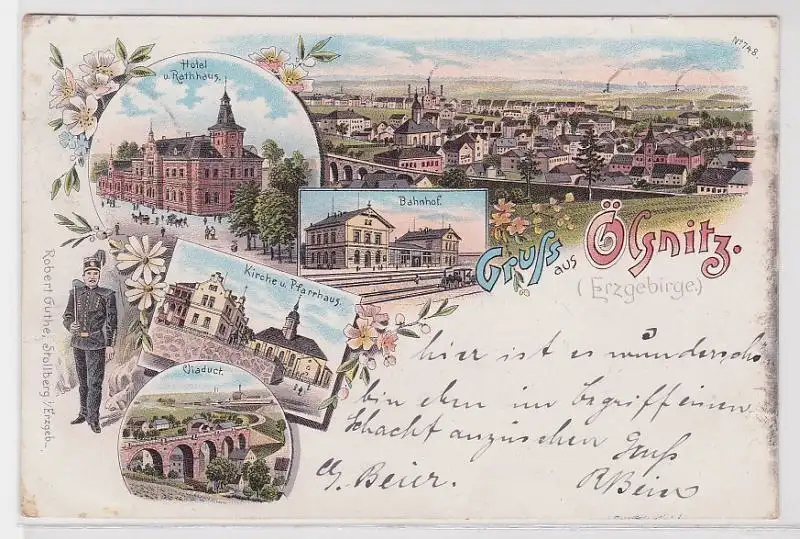 No 748.
Hotel
u. Rathhaus.
Bahnhof.
Gruss aus Ölsnitz.
(Erzgebirge.)
Kirche u. Pfarrhaus.
Viaduct.
Robert Guthe, Stollberg i/Erzgeb.
hier ist es wunderschö
bin eben im begriff einen
Schacht anzusehen Gruß
Beier.